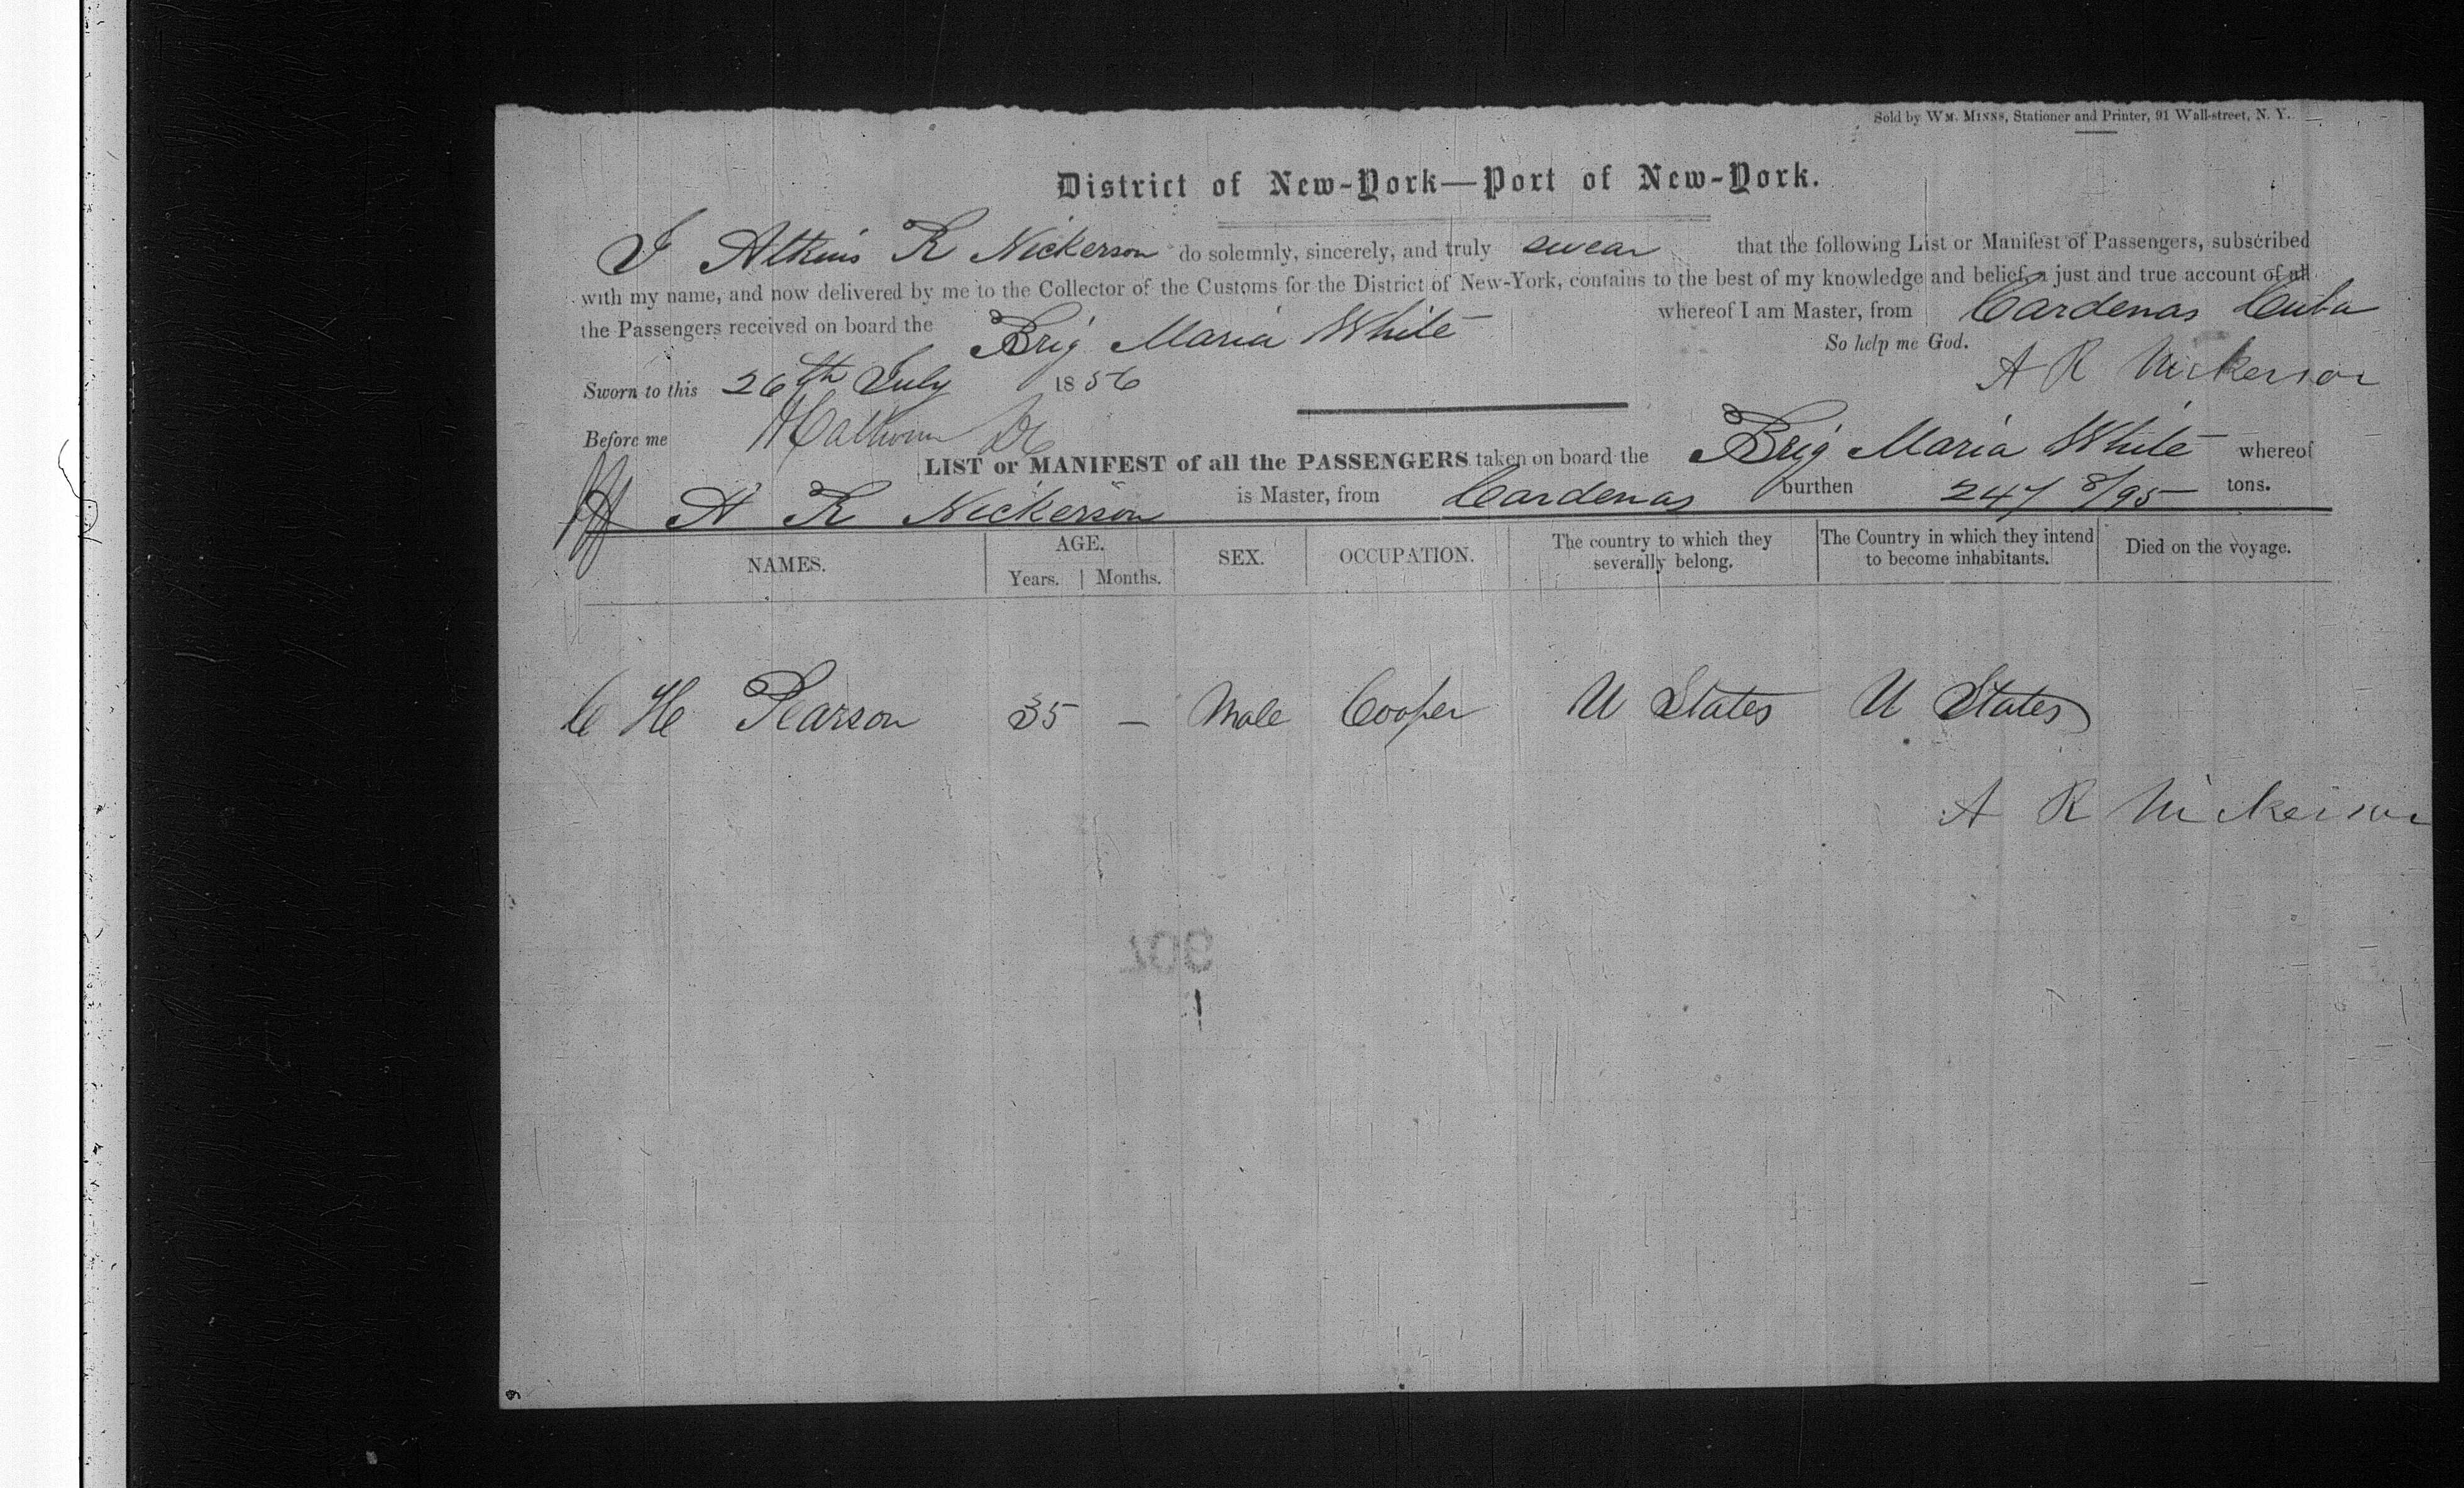 Sold by WM. MINNS, Stationer and Printer, 91 Wall-street, N. Y.
District of New-York—Port of New-York.
I Atkins R Nickerson do solemnly, sincerely, and truly swear that the following List or Manifest of Passengers, subscribed
with my name, and now delivered by me to the Collector of the Customs for the District of New-York, contains to the best of my knowledge and belief, a just and true account of all
the Passengers received on board the Brig Maria White whereof I am Master, from Cardenas Cuba
So help me God.
Sworn to this 26th July 1856 A R Nickerson
Before me
LIST or MANIFEST of all the PASSENGERS taken on board the Brig Maria White whereof
A R Nickerson is Master, from Cardenas burthen 247 8/95 tons.
NAMES. AGE. Years. Months. SEX. OCCUPATION. The country to which they severally belong. The Country in which they intend to become inhabitants. Died on the voyage.
C H Pearson 35 — Male Cooper U States U States
A R Nickerson